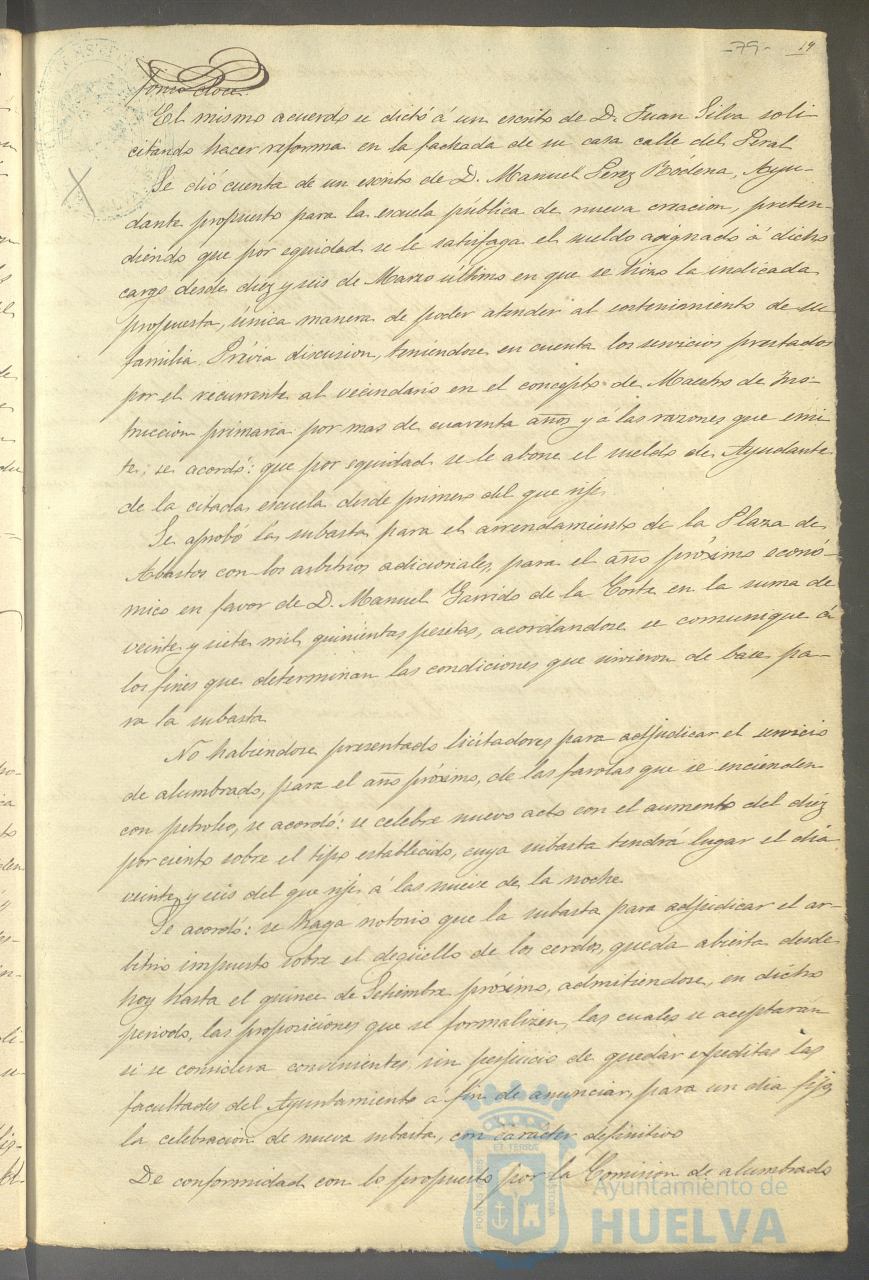 -79- 19
tonio Roca.
El mismo acuerdo se dictó á un escrito de D. Juan Silva soli
citando hacer reforma en la fachada de su casa calle del Peral
Se dió cuenta de un escrito de D. Manuel Perez Ródena, Ayu-
dante propuesto para la escuela publica de nueva creacion, preten-
diendo que por equidad se le satisfaga el sueldo asignado á dicho
cargo desde diez y seis de Marzo último en que se hizo la indicada
propuesta, única manera de poder atender al sostenimiento de su
familia. Prévia discusion, teniendose en cuenta los servicios prestados
por el recurrente al vecindario en el concepto de Maestro de Ins-
truccion primaria por mas de cuarenta años y á las razones que emi
te; se acordó: que por equidad se le abone el sueldo de Ayudante
de la citada escuela desde primero del que rije.
Se aprobó la subasta para el arrendamiento de la Plaza de
Abastos con los arbitrios adicionales, para el año próximo econó-
mico en favor de D. Manuel Garrido de la Corte en la suma de
veinte y siete mil quinientas pesetas, acordandose se comunique á
los fines que determinan las condiciones que sirvieron de base pa-
ra la subasta
No habiendose presentado licitadores para adjudicar el servicio
de alumbrado, para el año próximo, de las farolas que se encienden
con petroleo, se acordó: se celebre nuevo acto con el aumento del diez
por ciento sobre el tipo establecido, cuya subasta tendrá lugar el dia
veinte y seis del que rije á las nueve de la noche
Se acordó: se haga notorio que la subasta para adjudicar el ar-
bitrio impuesto sobre el degüello de los cerdos, queda abierta desde
hoy hasta el quince de Setiembre próximo, admitiendose, en dicho
periodo, las proposiciones que se formalizen, las cuales se aceptarán
si se considera convenientes, sin perjuicio de quedar expeditas las
facultades del Ayuntamiento á fin de anunciar, para un dia fijo,
la celebracion de nueva subasta, con carácter definitivo
De conformidad con lo propuesto por la Comision de alumbrado
Ayuntamiento de
HUELVA